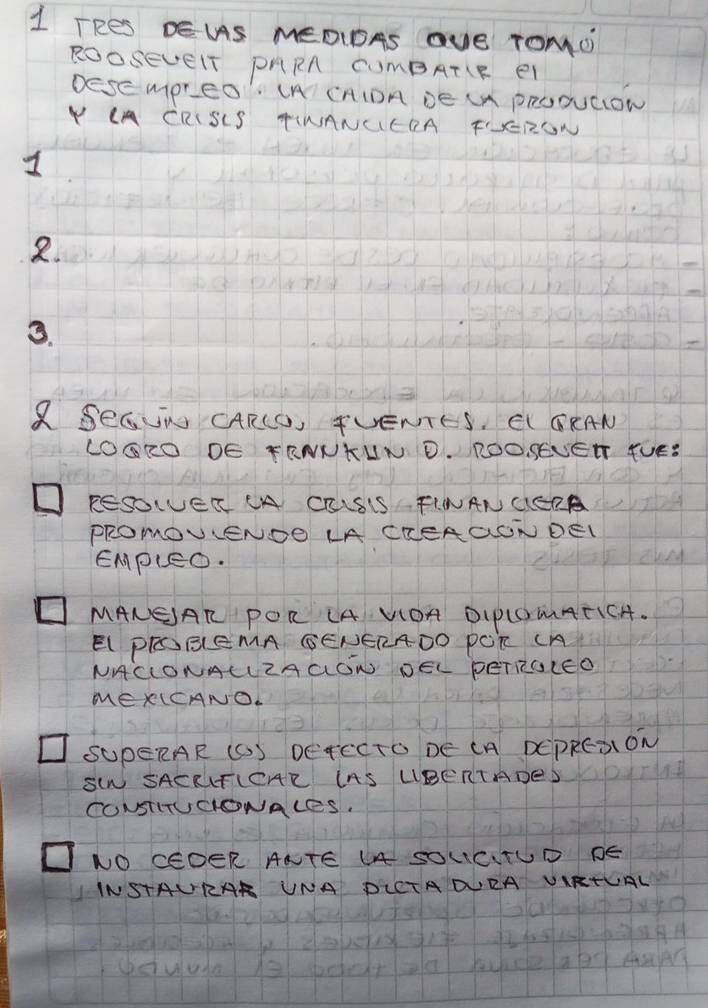 1 TRES DE LAS MEDIDAS QUE TOMó
ROOSEVELT PARA CUMBATIR El
DESEMPLEO. LA CAIDA DE LA PRODUCIÓN
Y LA CRISIS FINANCIERA FUERON
1
2.
3.
2 SEGUIN CARLOS FUENTES, El GRAN
LOGRO DE FRANKLIN D. ROOSEVELT FUE:
RESOLVER LA CRISIS FINANCIERA
PROMOVIENDO LA CREACIÓN DEl
EMPLEO.
MANEJAR POR LA VIDA DIPLOMATICA.
El PROBLEMA GENERADO POR LA
NACIONALIZACIÓN DEL PETROLEO
MEXICANO.
SUPERAR LOS DEFECTO DE LA DEPRESIÓN
SIN SACRIFICAR LAS LIBERTADES
CONSTITUCIONALES.
NO CEDER ANTE LA SOLICITUD DE
INSTAURAR UNA DICTADURA VIRTUAL